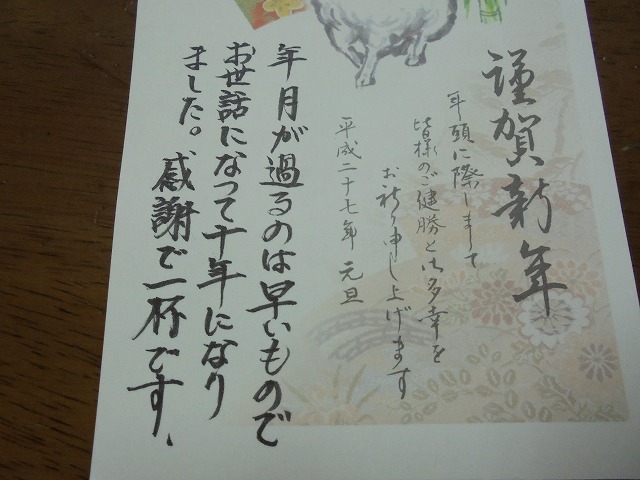 謹賀新年
年頭に際しまして
皆様のご健勝と御多幸を
お祈り申し上げます
平成二十七年 元旦
年月が過るのは早いもので
お世話になって十年になり
ました。感謝で一杯です、